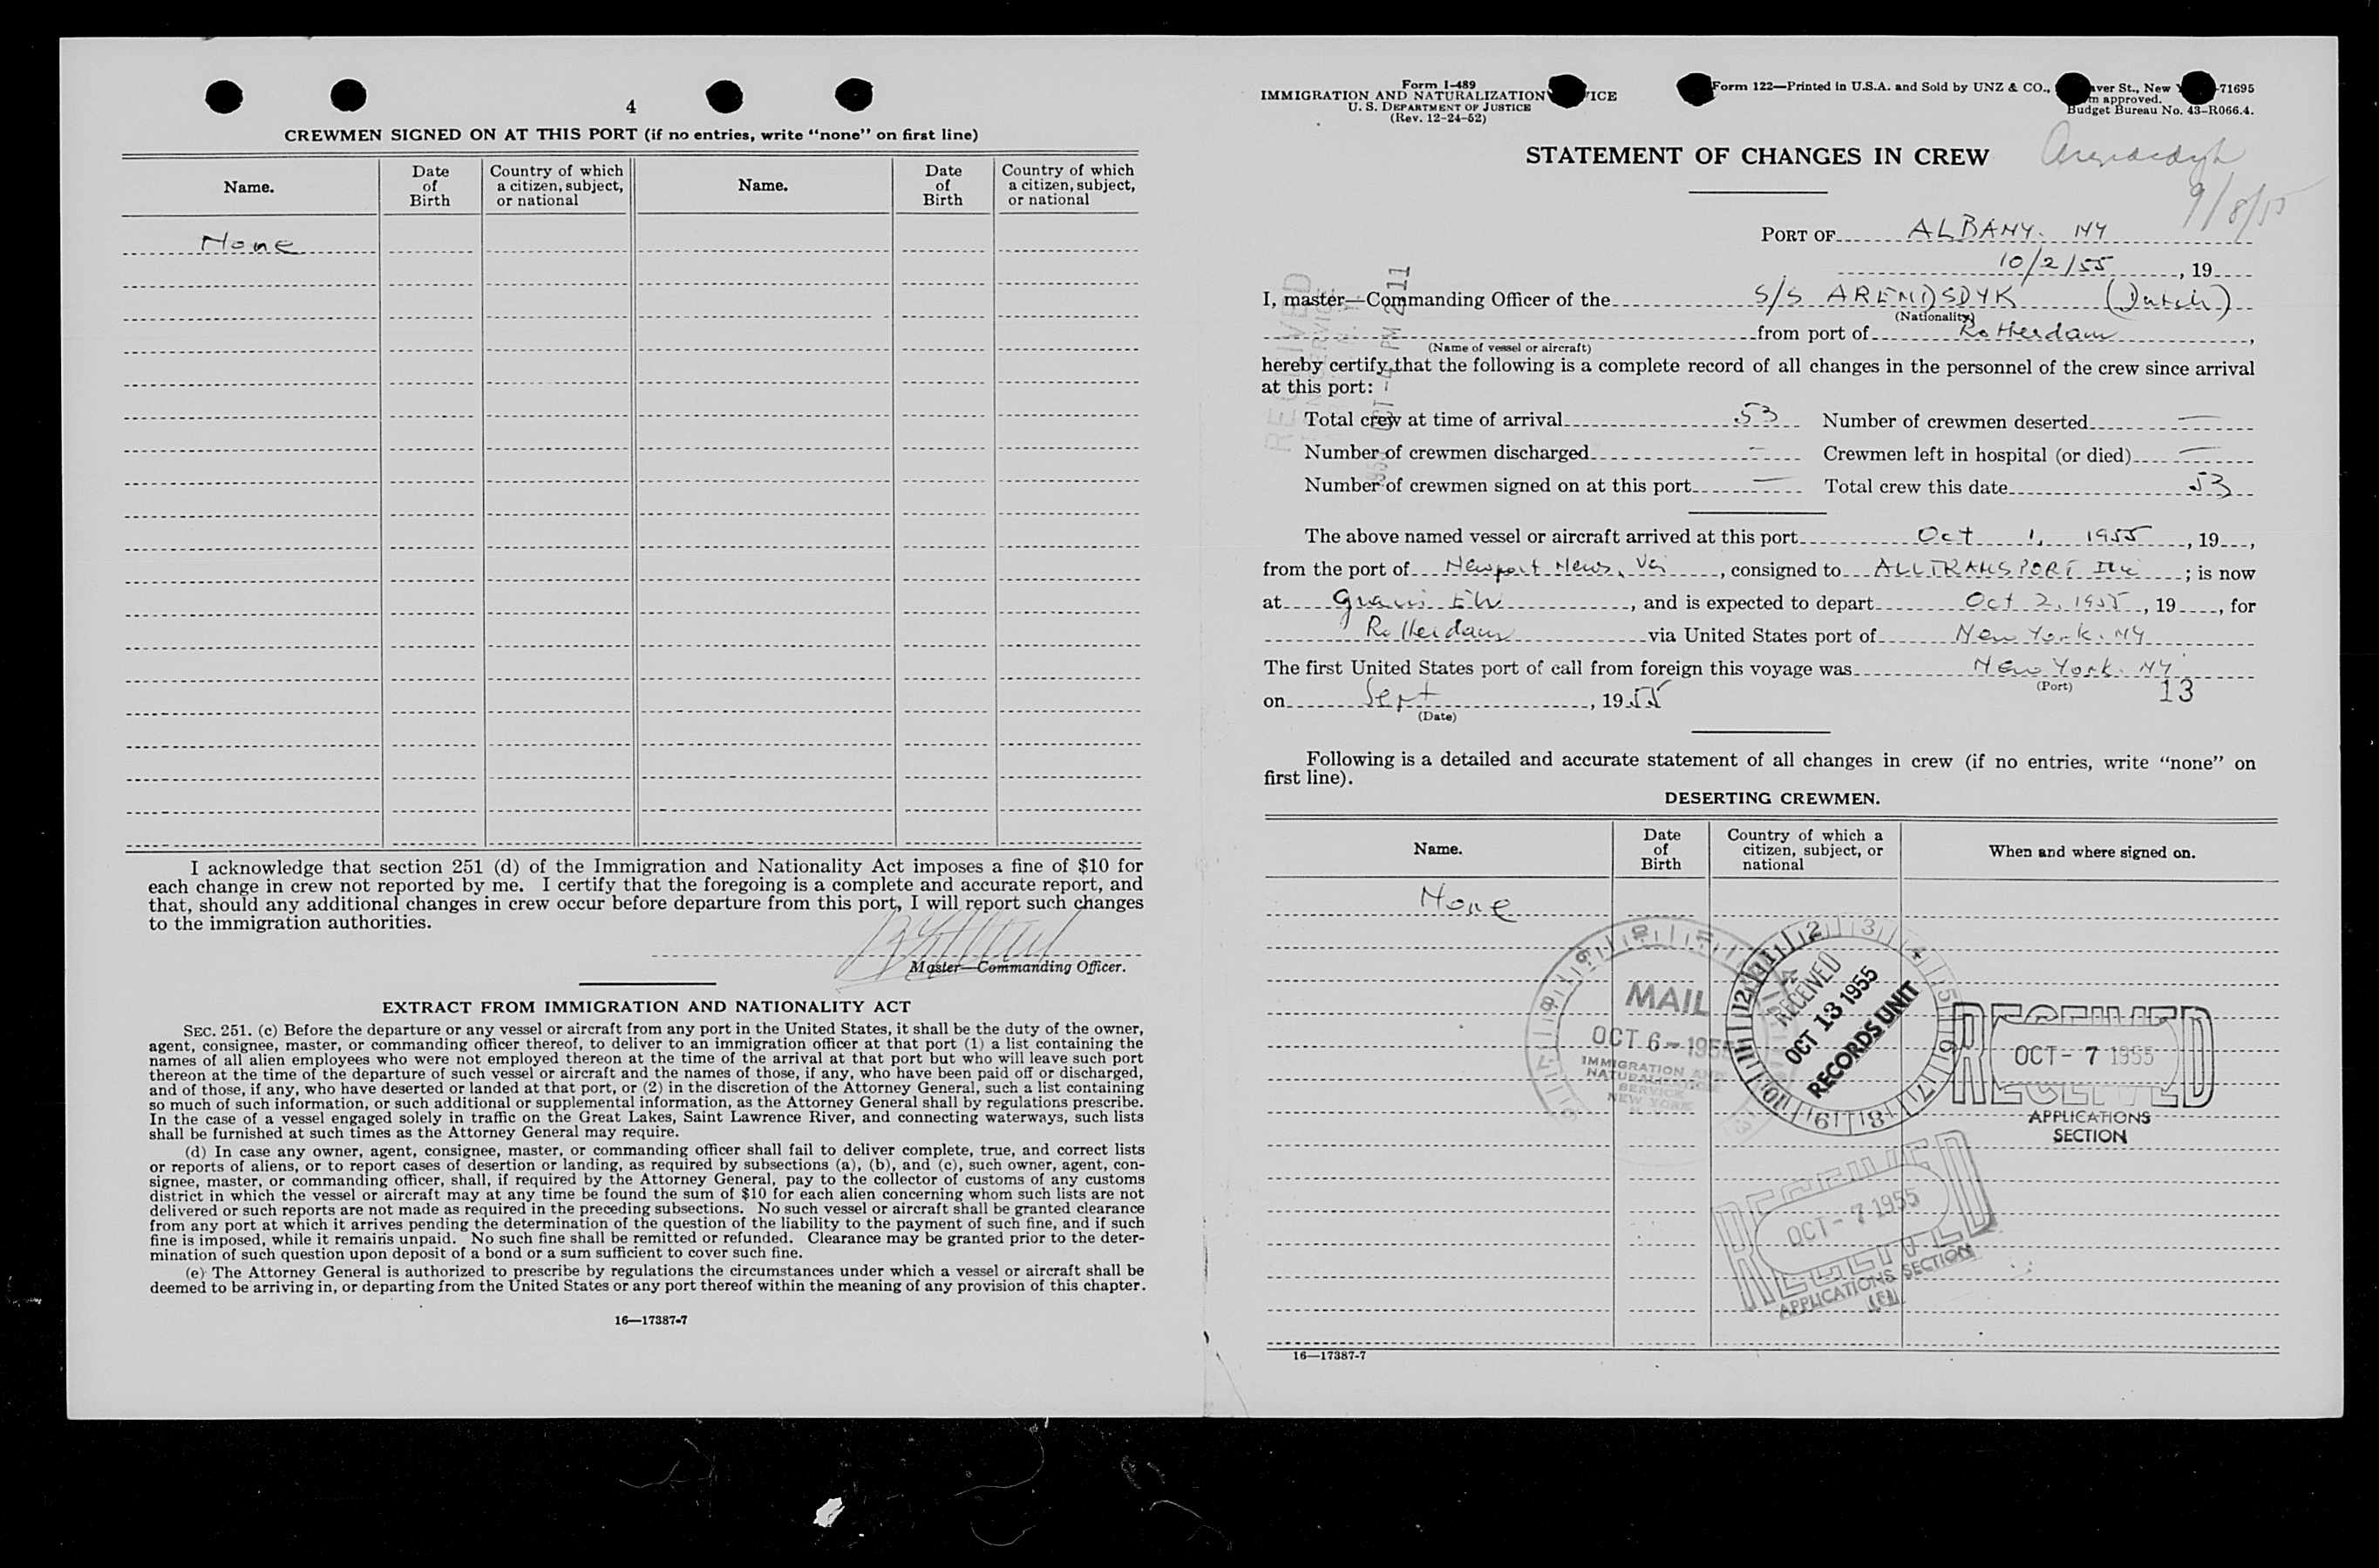 4
CREWMEN SIGNED ON AT THIS PORT (if no entries, write "none" on first line)
Name. Date of Birth Country of which a citizen, subject, or national Name. Date of Birth Country of which a citizen, subject, or national
None
I acknowledge that section 251 (d) of the Immigration and Nationality Act imposes a fine of $10 for
each change in crew not reported by me. I certify that the foregoing is a complete and accurate report, and
that, should any additional changes in crew occur before departure from this port, I will report such changes
to the immigration authorities.
Master—Commanding Officer.
EXTRACT FROM IMMIGRATION AND NATIONALITY ACT
SEC. 251. (c) Before the departure or any vessel or aircraft from any port in the United States, it shall be the duty of the owner,
agent, consignee, master, or commanding officer thereof, to deliver to an immigration officer at that port (1) a list containing the
names of all alien employees who were not employed thereon at the time of the arrival at that port but who will leave such port
thereon at the time of the departure of such vessel or aircraft and the names of those, if any, who have been paid off or discharged,
and of those, if any, who have deserted or landed at that port, or (2) in the discretion of the Attorney General, such a list containing
so much of such information, or such additional or supplemental information, as the Attorney General shall by regulations prescribe.
In the case of a vessel engaged solely in traffic on the Great Lakes, Saint Lawrence River, and connecting waterways, such lists
shall be furnished at such times as the Attorney General may require.
(d) In case any owner, agent, consignee, master, or commanding officer shall fail to deliver complete, true, and correct lists
or reports of aliens, or to report cases of desertion or landing, as required by subsections (a), (b), and (c), such owner, agent, con-
signee, master, or commanding officer, shall, if required by the Attorney General, pay to the collector of customs of any customs
district in which the vessel or aircraft may at any time be found the sum of $10 for each alien concerning whom such lists are not
delivered or such reports are not made as required in the preceding subsections. No such vessel or aircraft shall be granted clearance
from any port at which it arrives pending the determination of the question of the liability to the payment of such fine, and if such
fine is imposed, while it remains unpaid. No such fine shall be remitted or refunded. Clearance may be granted prior to the deter-
mination of such question upon deposit of a bond or a sum sufficient to cover such fine.
(e) The Attorney General is authorized to prescribe by regulations the circumstances under which a vessel or aircraft shall be
deemed to be arriving in, or departing from the United States or any port thereof within the meaning of any provision of this chapter.
16—17387-7
Form I-489
IMMIGRATION AND NATURALIZATION VICE
U. S. DEPARTMENT OF JUSTICE
(Rev. 12-24-52)
Form 122—Printed in U.S.A. and Sold by UNZ & CO., aver St., New -71695
m approved.
Budget Bureau No. 43-R066.4.
STATEMENT OF CHANGES IN CREW
Arendsdyk
9/8/55
PORT OF ALBANY. NY
10/2/55, 19
I, master—Commanding Officer of the S/S ARENDSDYK (Dutch)
(Nationality)
from port of Rotterdam,
(Name of vessel or aircraft)
hereby certify that the following is a complete record of all changes in the personnel of the crew since arrival
at this port:
Total crew at time of arrival 53 Number of crewmen deserted —
Number of crewmen discharged — Crewmen left in hospital (or died) —
Number of crewmen signed on at this port — Total crew this date 53
The above named vessel or aircraft arrived at this port Oct 1, 1955, 19,
from the port of Newport News, Va, consigned to ALLTRANSPORT Inc; is now
at, and is expected to depart Oct 2, 1955, 19, for
Rotterdam via United States port of New York. NY
The first United States port of call from foreign this voyage was New York. NY
(Port)
13
on Sept, 1955
(Date)
Following is a detailed and accurate statement of all changes in crew (if no entries, write "none" on
first line).
DESERTING CREWMEN.
Name. Date of Birth Country of which a citizen, subject, or national When and where signed on.
None
MAIL
OCT 6 - 1955
IMMIGRATION AND
NATURALIZATION
SERVICE
NEW YORK
RECEIVED
OCT 13 1955
RECORDS UNIT
RECEIVED
OCT - 7 1955
APPLICATIONS
SECTION
RECEIVED
OCT - 7 1955
APPLICATIONS SECTION
16—17387-7